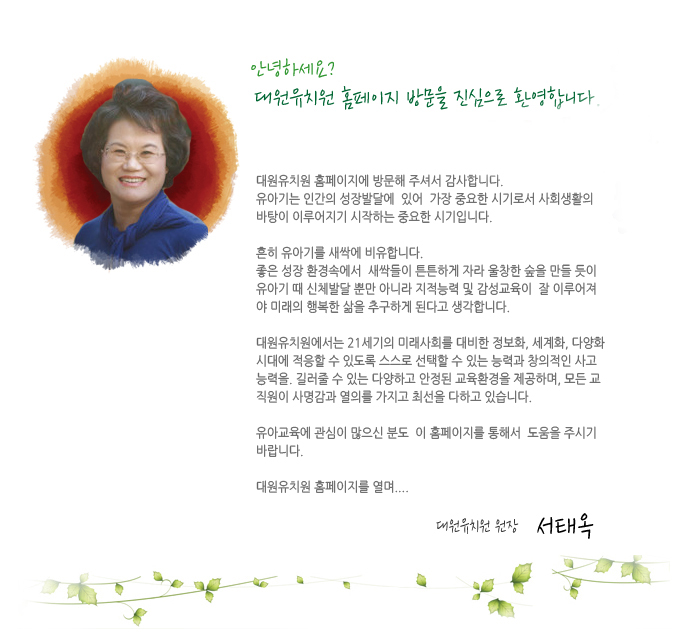 안녕하세요?
대원유치원 홈페이지 방문을 진심으로 환영합니다.
대원유치원 홈페이지에 방문해 주셔서 감사합니다.
유아기는 인간의 성장발달에 있어 가장 중요한 시기로서 사회생활의
바탕이 이루어지기 시작하는 중요한 시기입니다.
흔히 유아기를 새싹에 비유합니다.
좋은 성장 환경속에서 새싹들이 튼튼하게 자라 울창한 숲을 만들 듯이
유아기 때 신체발달 뿐만 아니라 지적능력 및 감성교육이 잘 이루어져
야 미래의 행복한 삶을 추구하게 된다고 생각합니다.
대원유치원에서는 21세기의 미래사회를 대비한 정보화, 세계화, 다양화
시대에 적응할 수 있도록 스스로 선택할 수 있는 능력과 창의적인 사고
능력을. 길러줄 수 있는 다양하고 안정된 교육환경을 제공하며, 모든 교
직원이 사명감과 열의를 가지고 최선을 다하고 있습니다.
유아교육에 관심이 많으신 분도 이 홈페이지를 통해서 도움을 주시기
바랍니다.
대원유치원 홈페이지를 열며....
대원유치원 원장 서태옥